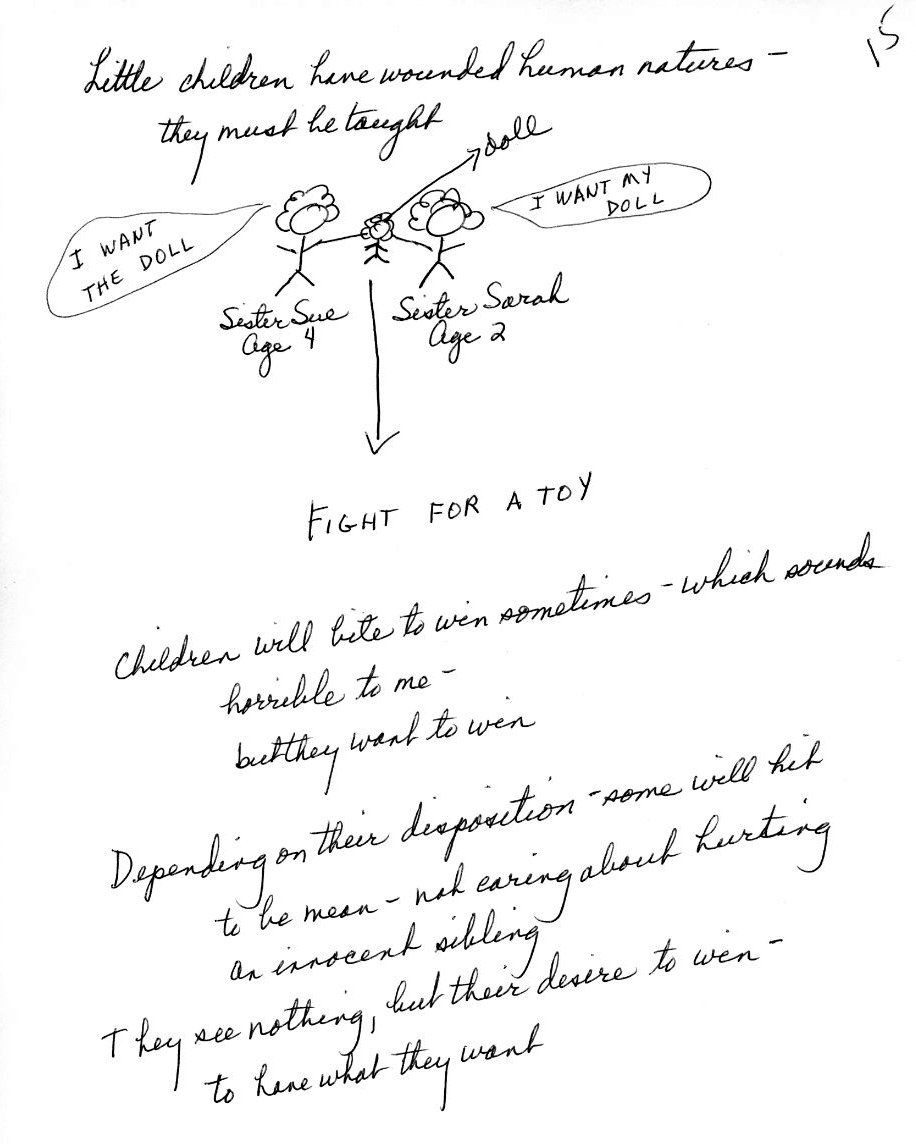 15
Little children have wounded human natures -
they must be taught
doll
I WANT
THE DOLL
I WANT MY
DOLL
Sister Sue
Age 4
Sister Sarah
Age 2
FIGHT FOR A TOY
Children will bite to win sometimes - which sounds
horrible to me -
but they want to win
Depending on their disposition - some will hit
to be mean - not caring about hurting
an innocent sibling
They see nothing, but their desire to win -
to have what they want